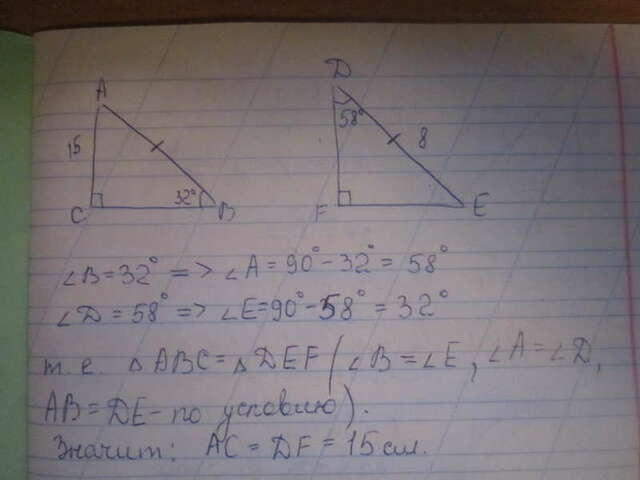 A
15
C
32°
B
D
58°
8
F
E
∠B=32° => ∠A=90°-32°=58°
∠D=58° => ∠E=90°-58°=32°
т.е. △ABC=△DEF (∠B=∠E, ∠A=∠D,
AB=DE-по условию).
Значит: AC=DF=15см.